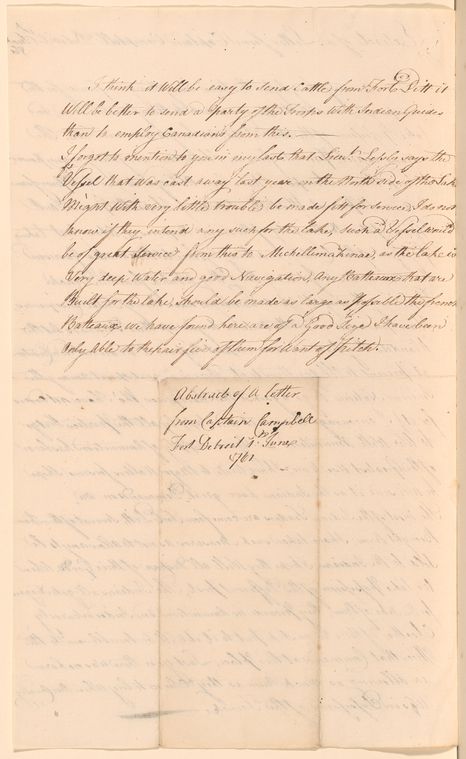 I think it Will be easy to send Cattle from Fort Pitt it
Will be better to send a party of the Troops With Indian Guides
than to employ Canadians from this. —
I forgot to mention to you in my last that Lieut. Leslie says the
Vessel that was cast away last year in the North side of the Lake
Might With very little trouble be made fitt for service, I do not
know if they intend any such for the lake, such a Vessel would
be of great Service from this to Mechellimakinac, as the lake is
Very deep Water and good Navigation, Any Batteaux that are
Built for the lake, should be made as large as possible, the french
Batteaux we have found here are of a Good Size I have been
Only able to repair five of them for Want of pitch.
Abstract of a letter
from Captain Campbell
Fort Detroit 1st June
1761